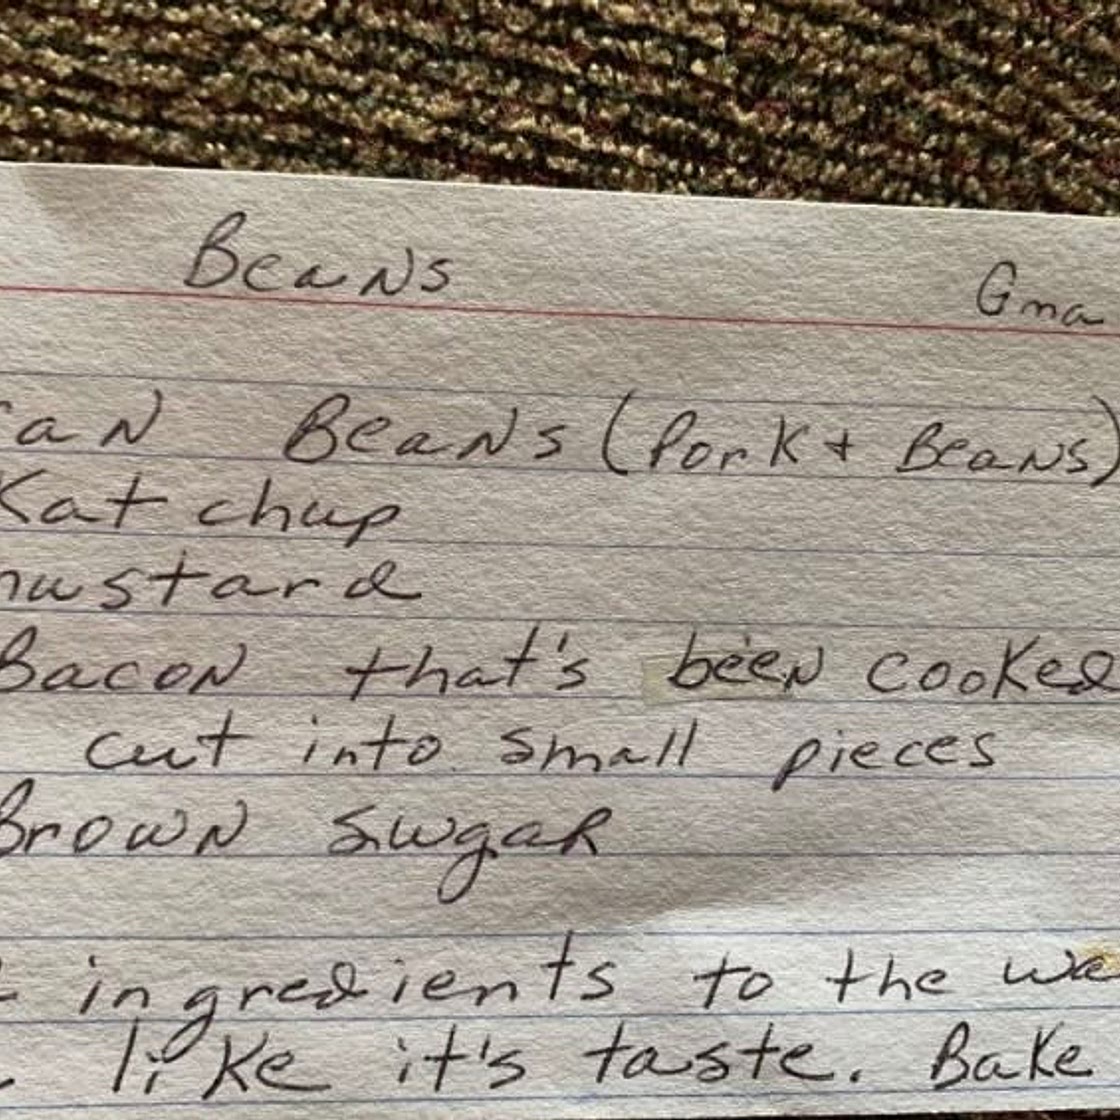 Beans Gma
an Beans (Pork + Beans)
Katchup
mustard
Bacon that's been cooked
cut into small pieces
Brown Sugar
ingredients to the
like it's taste. Bake